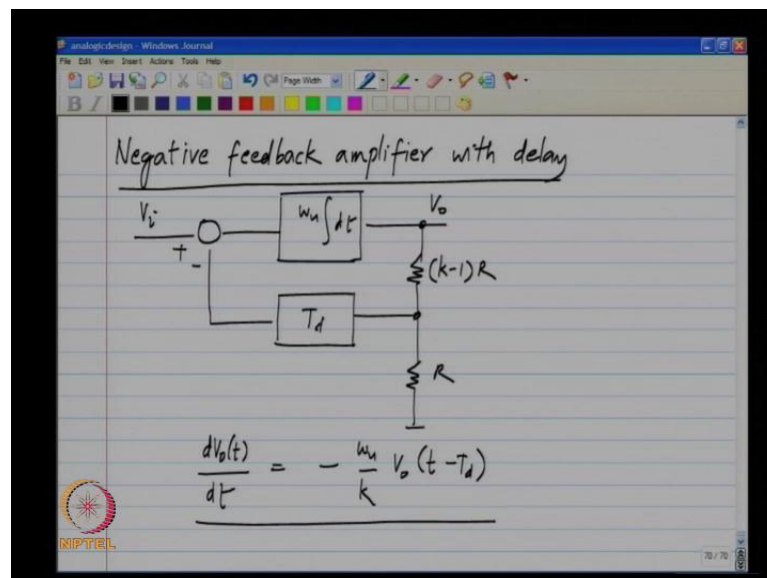 analogicdesign - Windows Journal
File Edit View Insert Actions Tools Help
Page Width
B I
Negative feedback amplifier with delay
Vi
+
-
ωu ∫dt
Vo
(k-1)R
Td
R
dVo(t)/dt = - ωu/k Vo (t-Td)
NPTEL
70 / 70